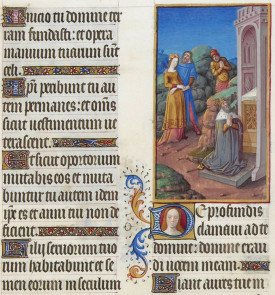 Inicio tu domine ter
ram fundasti. et opera
manuum tuarum sunt
celi.
Ipsi peribunt tu au
tem permanes: et omes
sicut uestimentum ue
terascent.
Et sicut opertorium
mutabis eos et muta
buntur tu autem idem
ipse es et anni tui non de
ficient.
Filii seruorum tuo
rum habitabunt et se
men eorum in seculum
De profundis
clamaui ad te
domine: domine exau
di uocem meam.
Fiant aures tue in